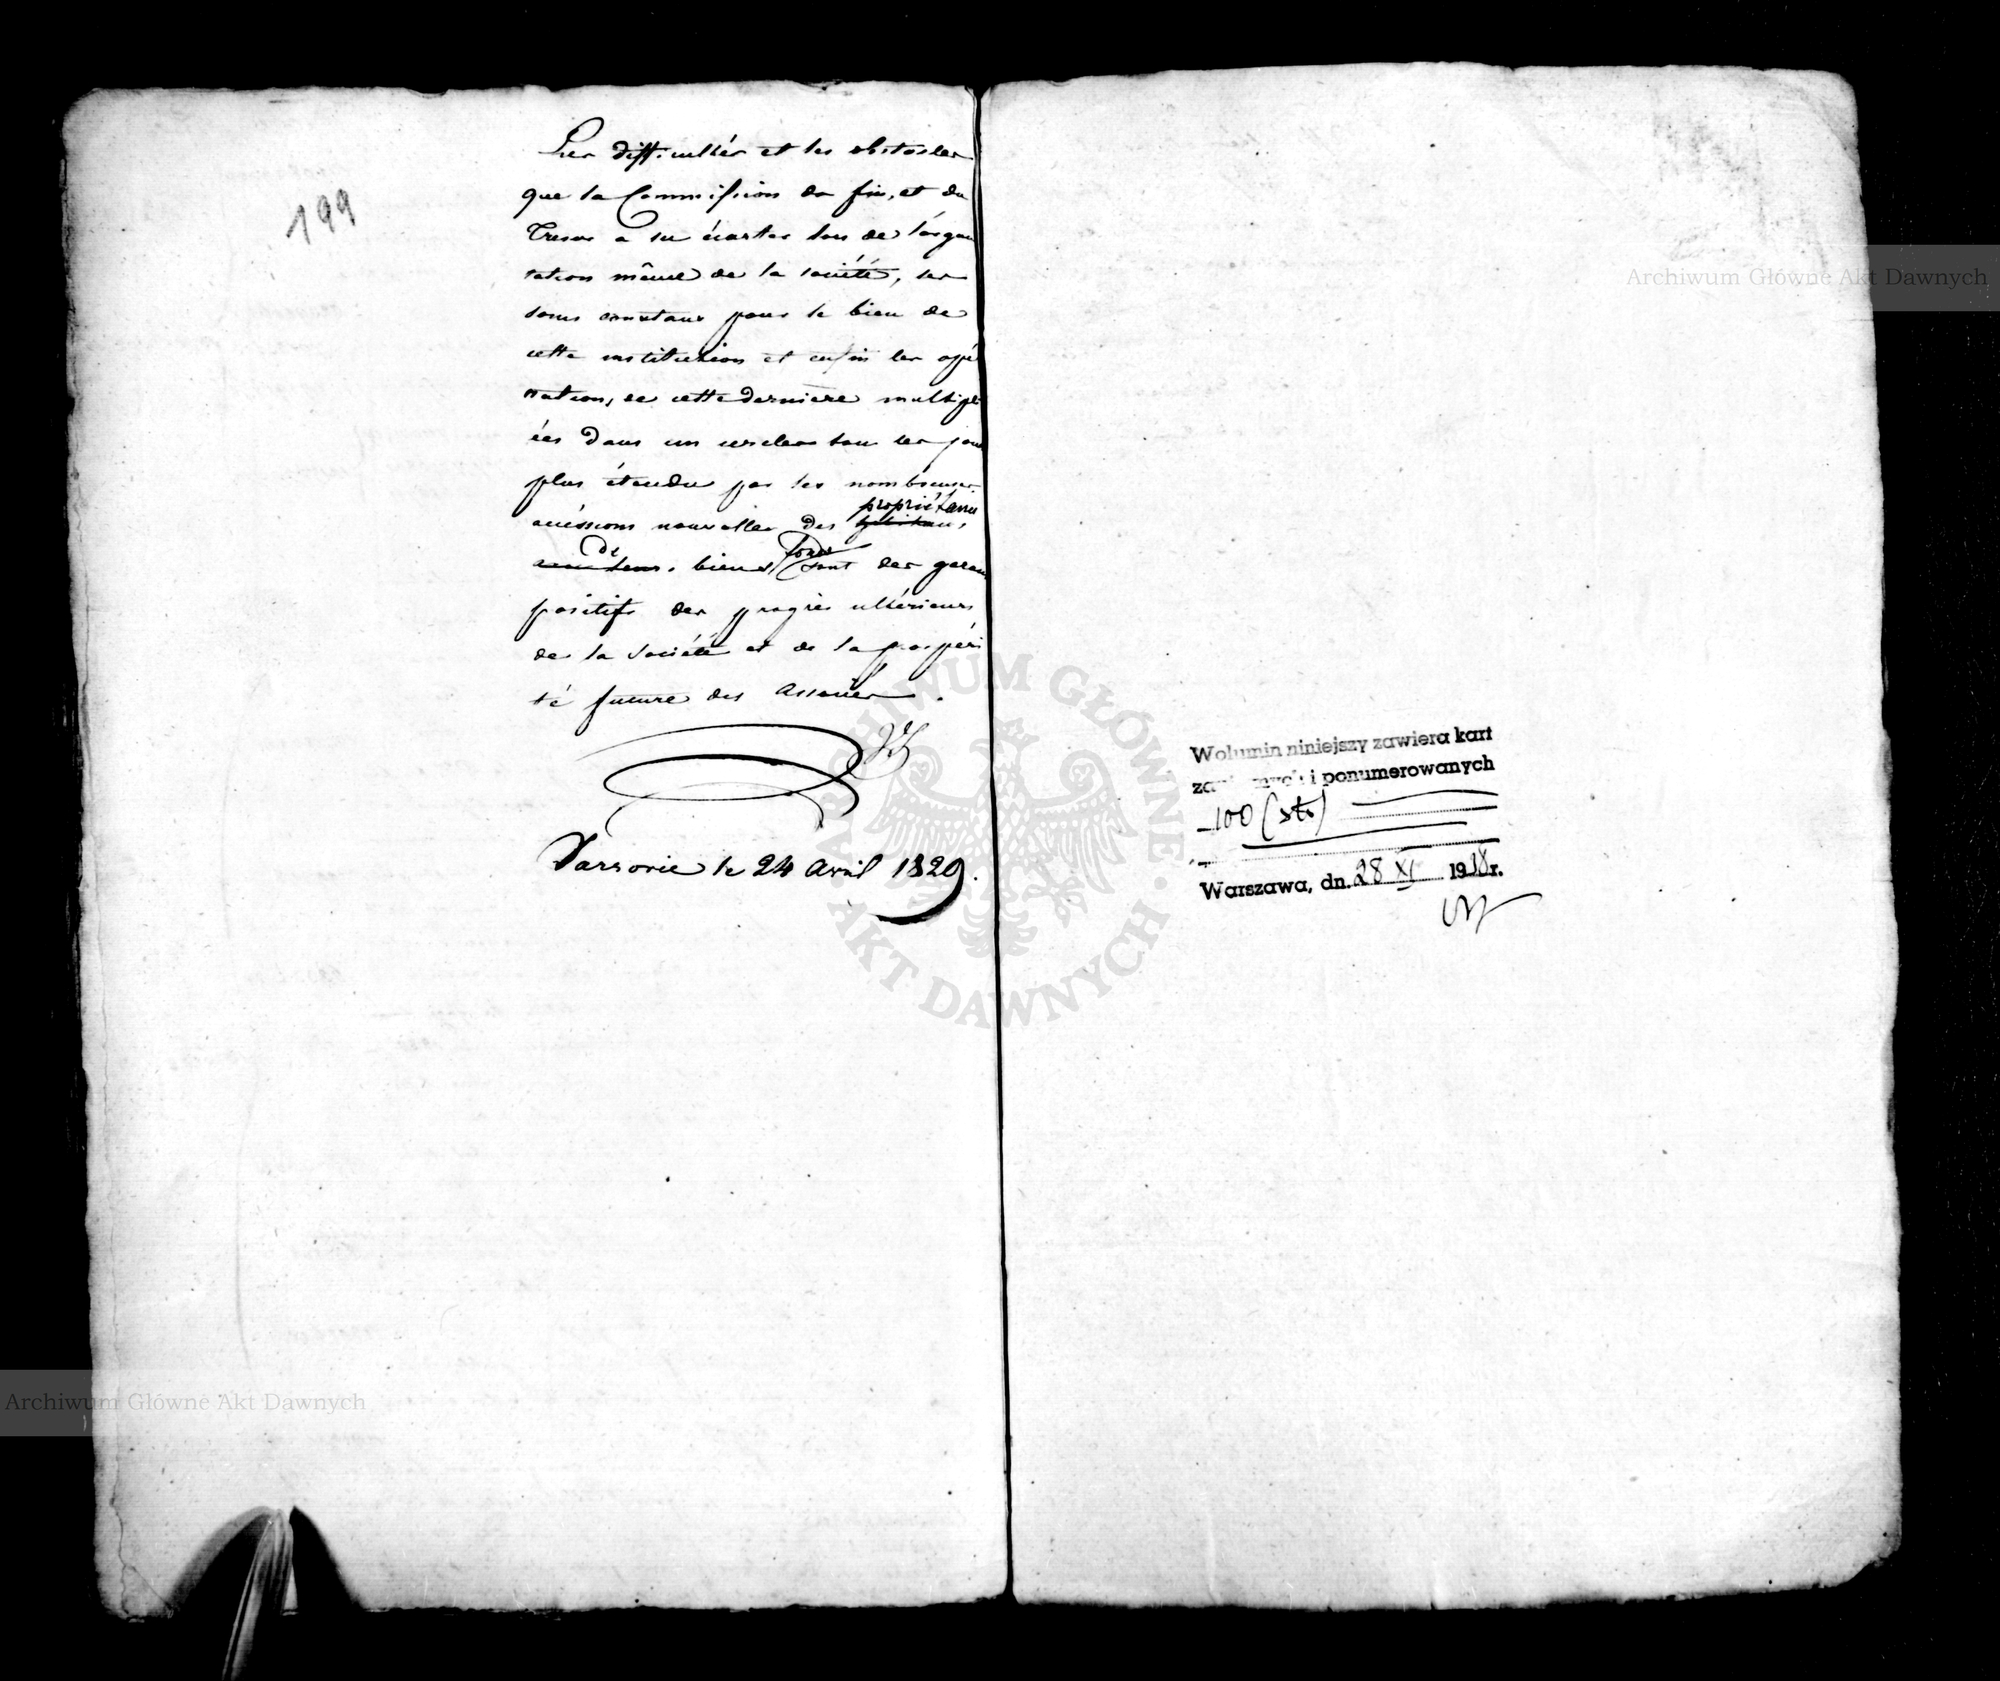 199
Les difficultés et les obstacles
que la Commission de fin, et du
Tresor a su écarter lors de l'organi
sation même de la société, les
soins constans pour le bien de
cette institution et enfin les opé
rations, de cette dernière multipli
ées dans un cercle tous les jours
plus étendu par les nombreuses
propriétaires
accessions nouvelles des
de fonds
biens, sont des garans
positifs des progrès ultérieurs
de la société et de la prospéri
té future des Associés.
Varsovie le 24 Avril 1829.
Wolumin niniejszy zawiera kart
i ponumerowanych
100 (sto)
Warszawa, dn. 28 XI 1958 r.
Archiwum Główne Akt Dawnych
ARCHIWUM GŁÓWNE
AKT DAWNYCH
Archiwum Główne Akt Dawnych